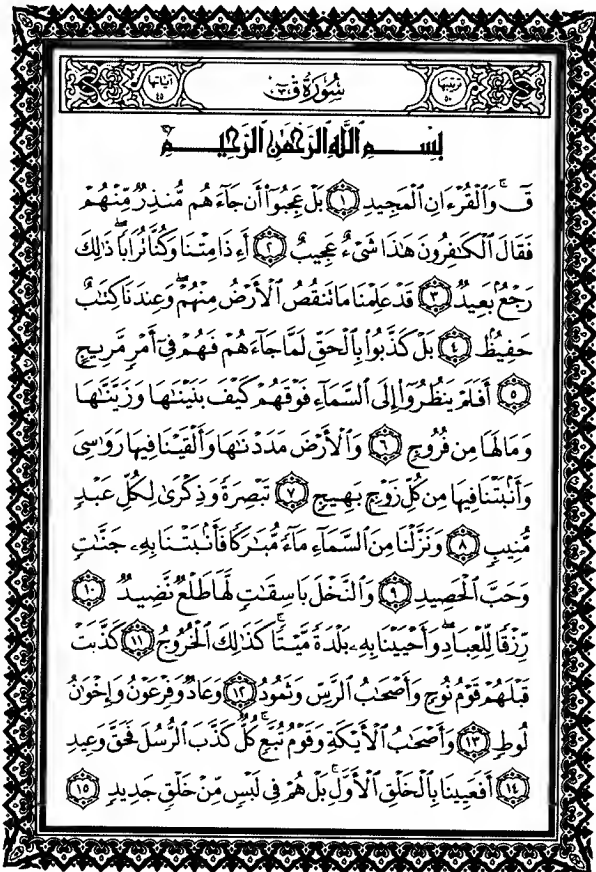 ترتيبها ٥٠ سُورَةُ قٓ آياتها ٤٥
بِسۡمِ ٱللَّهِ ٱلرَّحۡمَٰنِ ٱلرَّحِيمِ
قٓۚ وَٱلۡقُرۡءَانِ ٱلۡمَجِيدِ ١ بَلۡ عَجِبُوٓاْ أَن جَآءَهُم مُّنذِرٞ مِّنۡهُمۡ
فَقَالَ ٱلۡكَٰفِرُونَ هَٰذَا شَيۡءٌ عَجِيبٌ ٢ أَءِذَا مِتۡنَا وَكُنَّا تُرَابٗاۖ ذَٰلِكَ
رَجۡعُۢ بَعِيدٞ ٣ قَدۡ عَلِمۡنَا مَا تَنقُصُ ٱلۡأَرۡضُ مِنۡهُمۡۖ وَعِندَنَا كِتَٰبٌ
حَفِيظُۢ ٤ بَلۡ كَذَّبُواْ بِٱلۡحَقِّ لَمَّا جَآءَهُمۡ فَهُمۡ فِيٓ أَمۡرٖ مَّرِيجٍ
٥ أَفَلَمۡ يَنظُرُوٓاْ إِلَى ٱلسَّمَآءِ فَوۡقَهُمۡ كَيۡفَ بَنَيۡنَٰهَا وَزَيَّنَّٰهَا
وَمَا لَهَا مِن فُرُوجٖ ٦ وَٱلۡأَرۡضَ مَدَدۡنَٰهَا وَأَلۡقَيۡنَا فِيهَا رَوَٰسِيَ
وَأَنۢبَتۡنَا فِيهَا مِن كُلِّ زَوۡجِۭ بَهِيجٖ ٧ تَبۡصِرَةٗ وَذِكۡرَىٰ لِكُلِّ عَبۡدٖ
مُّنِيبٖ ٨ وَنَزَّلۡنَا مِنَ ٱلسَّمَآءِ مَآءٗ مُّبَٰرَكٗا فَأَنۢبَتۡنَا بِهِۦ جَنَّٰتٖ
وَحَبَّ ٱلۡحَصِيدِ ٩ وَٱلنَّخۡلَ بَاسِقَٰتٖ لَّهَا طَلۡعٞ نَّضِيدٞ ١٠
رِّزۡقٗا لِّلۡعِبَادِۖ وَأَحۡيَيۡنَا بِهِۦ بَلۡدَةٗ مَّيۡتٗاۚ كَذَٰلِكَ ٱلۡخُرُوجُ ١١ كَذَّبَتۡ
قَبۡلَهُمۡ قَوۡمُ نُوحٖ وَأَصۡحَٰبُ ٱلرَّسِّ وَثَمُودُ ١٢ وَعَادٞ وَفِرۡعَوۡنُ وَإِخۡوَٰنُ
لُوطٖ ١٣ وَأَصۡحَٰبُ ٱلۡأَيۡكَةِ وَقَوۡمُ تُبَّعٖۚ كُلّٞ كَذَّبَ ٱلرُّسُلَ فَحَقَّ وَعِيدِ
١٤ أَفَعَيِينَا بِٱلۡخَلۡقِ ٱلۡأَوَّلِۚ بَلۡ هُمۡ فِي لَبۡسٖ مِّنۡ خَلۡقٖ جَدِيدٖ ١٥